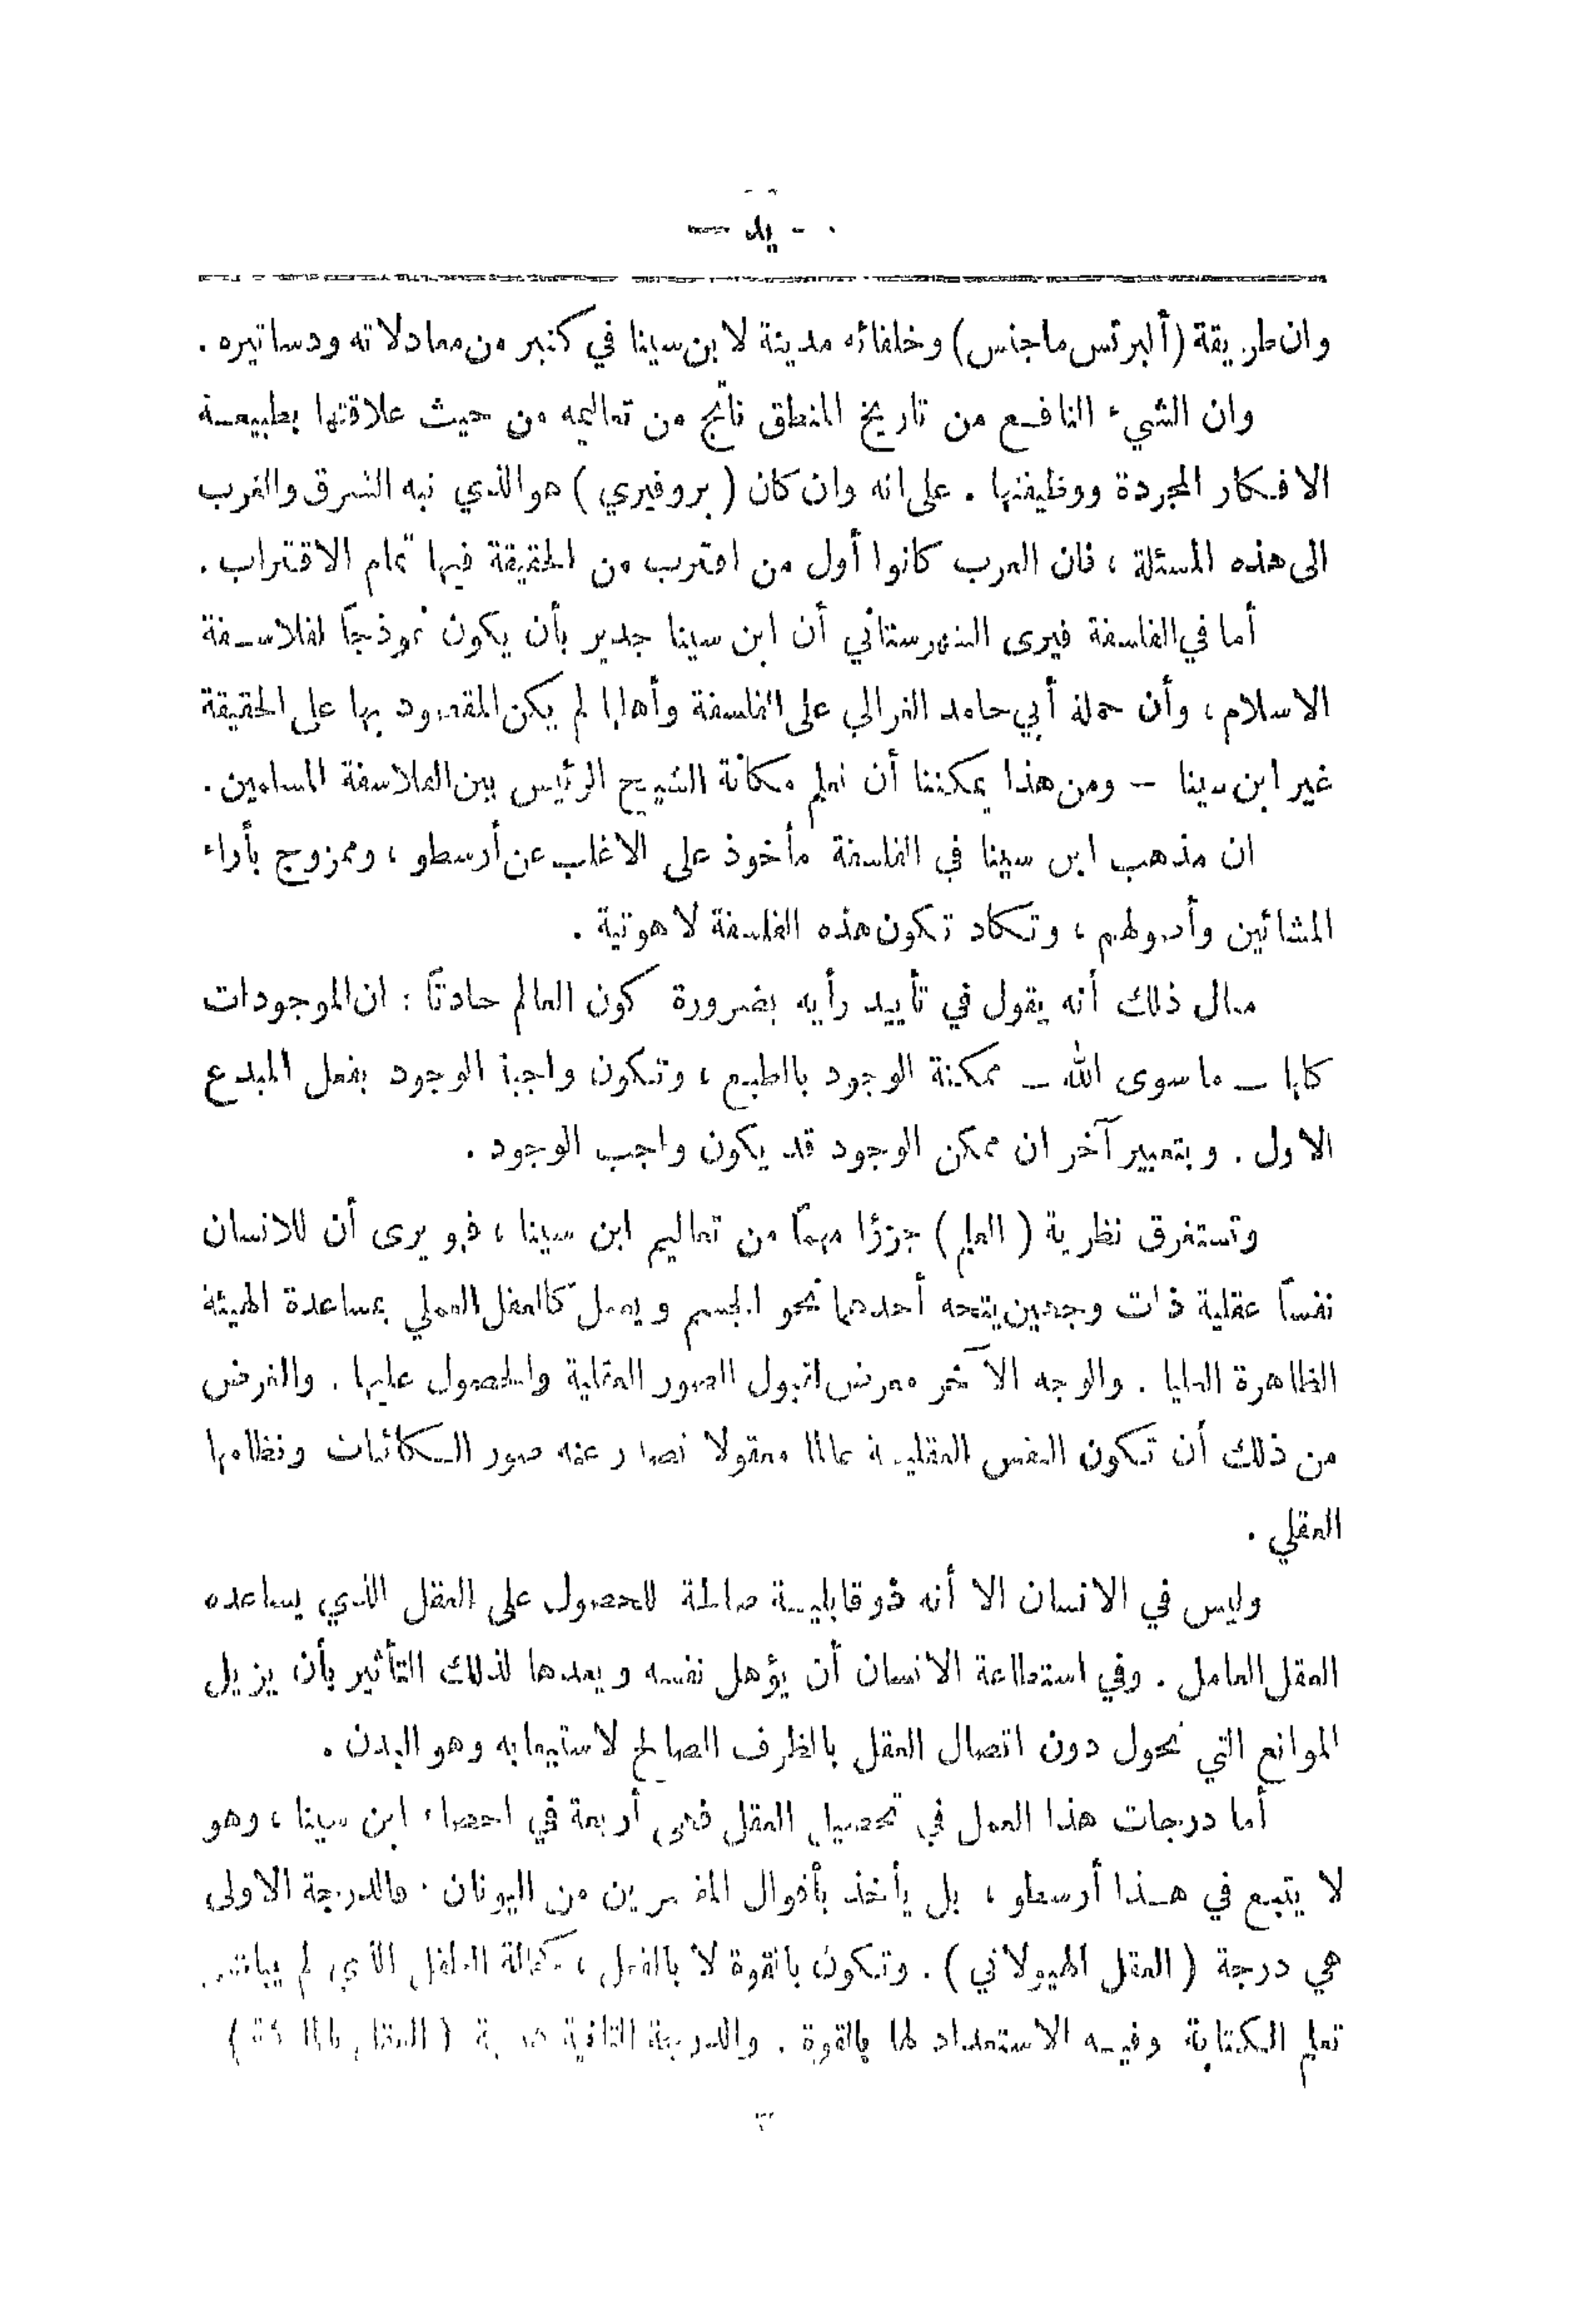 — يد —
وان طريقة (ألبرتس ماجنس) وخلفائه مدينة لابن سينا في كثير من معادلاته ودساتيره .
وان الشيء النافع من تاريخ المنطق ناتج من تعاليمه من حيث علاقتها بطبيعة
الافكار المجردة ووظيفتها . على انه وان كان ( بروفيري ) هو الذي نبه الشرق والغرب
الى هذه المسئلة ، فان العرب كانوا أول من اقترب من الحقيقة فيها تمام الاقتراب .
أما في الفلسفة فيرى الشهرستاني أن ابن سينا جدير بأن يكون نموذجاً لفلاسفة
الاسلام ، وأن حملة أبي حامد الغزالي على الفلسفة وأهلها لم يكن المقصود بها على الحقيقة
غير ابن سينا — ومن هذا يمكننا أن نعلم مكانة الشيخ الرئيس بين الفلاسفة المسلمين .
ان مذهب ابن سينا في الفلسفة مأخوذ على الاغلب عن أرسطو ، وممزوج بأراء
المشائين وأصولهم ، وتكاد تكون هذه الفلسفة لاهوتية .
مثال ذلك أنه يقول في تأييد رأيه بضرورة كون العالم حادثاً : ان الموجودات
كلها — ما سوى الله — ممكنة الوجود بالطبع ، وتكون واجبة الوجود بفعل المبدع
الاول . وبتعبير آخر ان ممكن الوجود قد يكون واجب الوجود .
وتستغرق نظرية ( العلم ) جزؤا مهماً من تعاليم ابن سينا ، فهو يرى أن للانسان
نفساً عقلية ذات وجهين يتجه أحدهما نحو الجسم ويعمل كالعقل العملي بمساعدة الهيئة
الظاهرة العليا . والوجه الآخر معرض لقبول الصور العقلية والحصول عليها . والغرض
من ذلك أن تكون النفس العقلية عالما معقولا تصدر عنه صور الكائنات ونظامها
العقلي .
وليس في الانسان الا أنه ذو قابلية صالحة للحصول على العقل الذي يساعده
العقل العامل . وفي استطاعة الانسان أن يؤهل نفسه ويعدها لذلك التأثير بأن يزيل
الموانع التي تحول دون اتصال العقل بالظرف الصالح لاستيعابه وهو البدن .
أما درجات هذا العمل في تحصيل العقل فهي أربعة في احصاء ابن سينا ، وهو
لا يتبع في هذا أرسطو ، بل يأخذ بأقوال المفسرين من اليونان . فالدرجة الاولى
هي درجة ( العقل الهيولاني ) . وتكون بالقوة لا بالفعل ، كحالة الطفل الذي لم
تعلم الكتابة وفيه الاستعداد لها بالقوة . والدرجة الثانية ( العقل بالملكة )